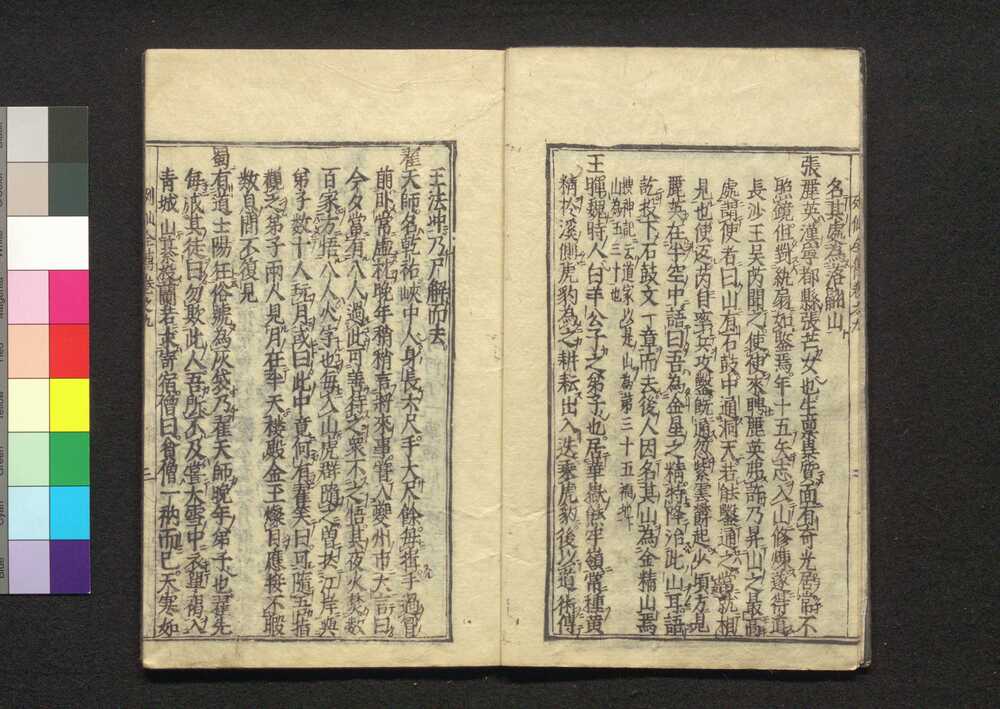 名其處為落觧山
張麗英漢寧都縣張芒女也生禀異質面有奇光居常不
照鏡但對紈扇如鑒焉年十五矢志入山修煉遂得道
長沙王吳芮聞之使使來聘麗英弗許乃昇山之最高
處謂使者曰山有石鼓中通洞天若能鑿通之當執相
見也使返芮自率兵攻鑿既通忽紫雲欝起少頃方見
麗英在半空中語曰吾為金星之精特降治此山耳語
訖投下石鼓文一章而去後人因名其山為金精山焉
搜神記云道家以是山為第三十五福地
王暉魏時人白羊公子之弟子也居華嶽能平嶺常種黄
精於溪側虎豹為之耕耘出入迭乘虎豹後以道術傳
王法冲乃尸解而去
翟天師名乾祐峽中人身長六尺手大尺餘每揖手過胷
前卧常虚枕晚年稍稍言將來事嘗入夔州市大言曰
今夕當有八人過此可善待之衆不之悟其夜火焚數
百家方悟八人火字也每入山虎群隨之曽於江岸與
弟子數十人玩月或曰此中竟何有翟笑曰可随吾指
觀之弟子兩人見月在半天樓殿金玉燦目應接不暇
數息間不復見
蜀有道士陽狂俗號為灰袋乃翟天師晚年弟子也翟先
每戒其徒曰勿欺此人吾所不及嘗大雪中衣布褐入
青城山暮投蘭若求寄宿僧曰貧僧一衲而已天寒如
列仙全傳卷之九